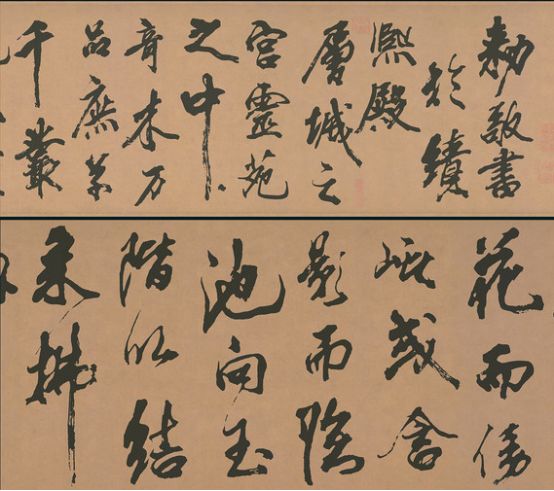 勅敬書
於績
熙殿
層城之
宮靈苑
之中
奇木万
品庶草
千叢
花而傍
或含
影而臨
池向玉
階以結
采拂